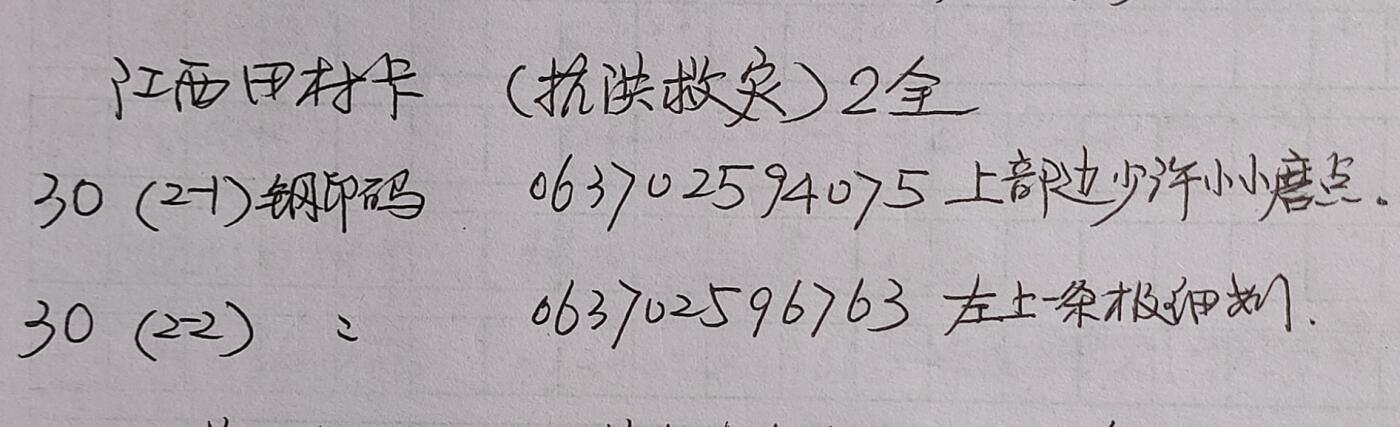 江西田村卡 (抗洪救灾) 2全
30 (2-1) 钢印码 063702594075 上部边少许小小磨点.
30 (2-2) 〃 063702596763 左上一条极细划.